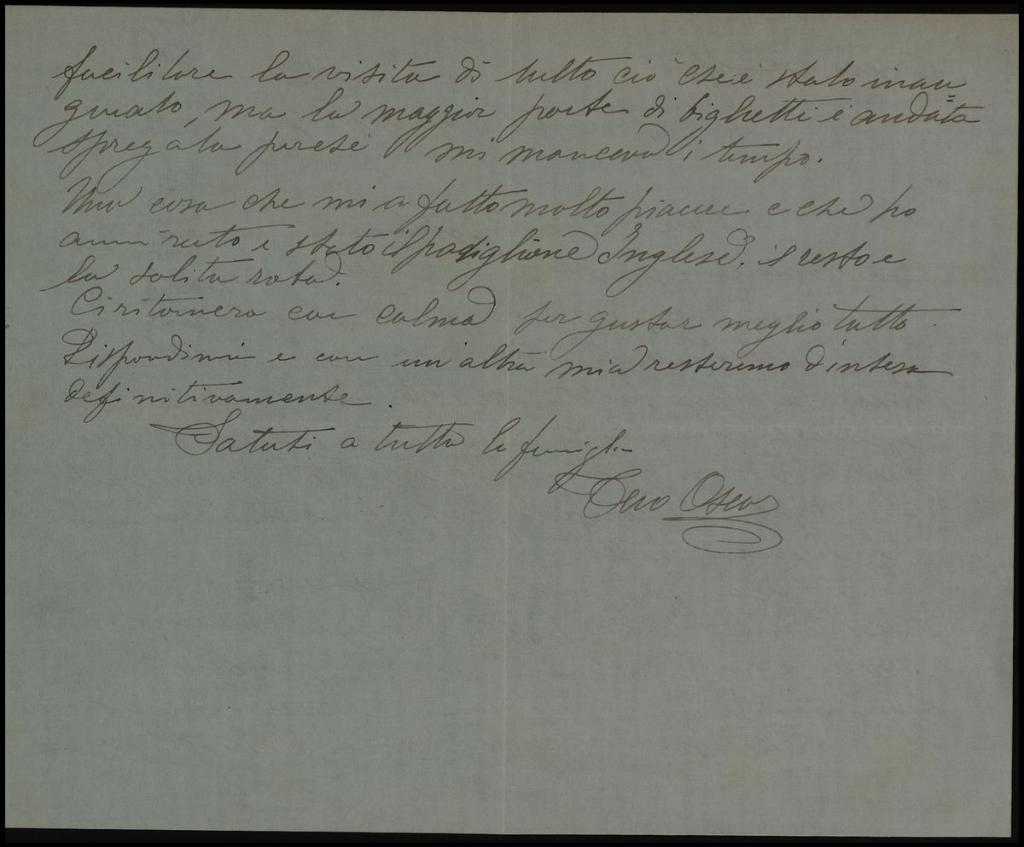 facilitare la visita di tutto ciò che è stato inau
gurato, ma la maggior parte di biglietti è andata
spregata perchè mi mancava i tempo.
Una cosa che mi a fatto molto piacere e che ho
ammirato e stato il padiglione Inglese, il resto e
la solita roba.
Ci ritornerò con calma per gustar meglio tutto.
Rispondimi e con un'altra mia resteremo d'intesa
definitivamente.
Saluti a tutta la famiglia
Tuo Oscar